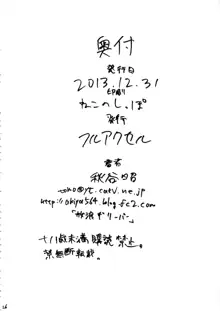 奥付
発行日
2013.12.31
印刷
ねこのしっぽ
発行
フルアクセル
著者
秋谷昭
http://akiya564.blog.fc2.com
十八歳未満購読禁止。
禁無断転載。
26